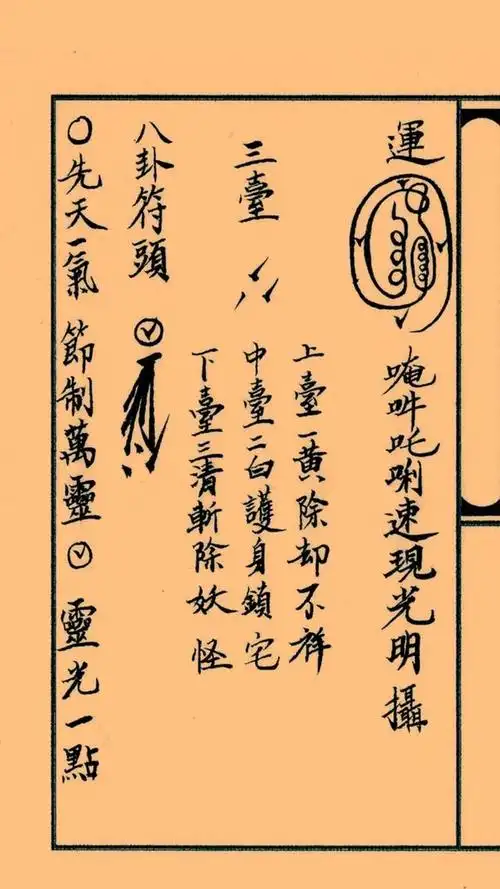 運
唵吽吒唎速現光明攝
三臺
上臺一黃除却不祥
中臺二白護身鎮宅
下臺三清斬除妖怪
八卦符頭
○先天一氣 節制萬靈 靈光一點